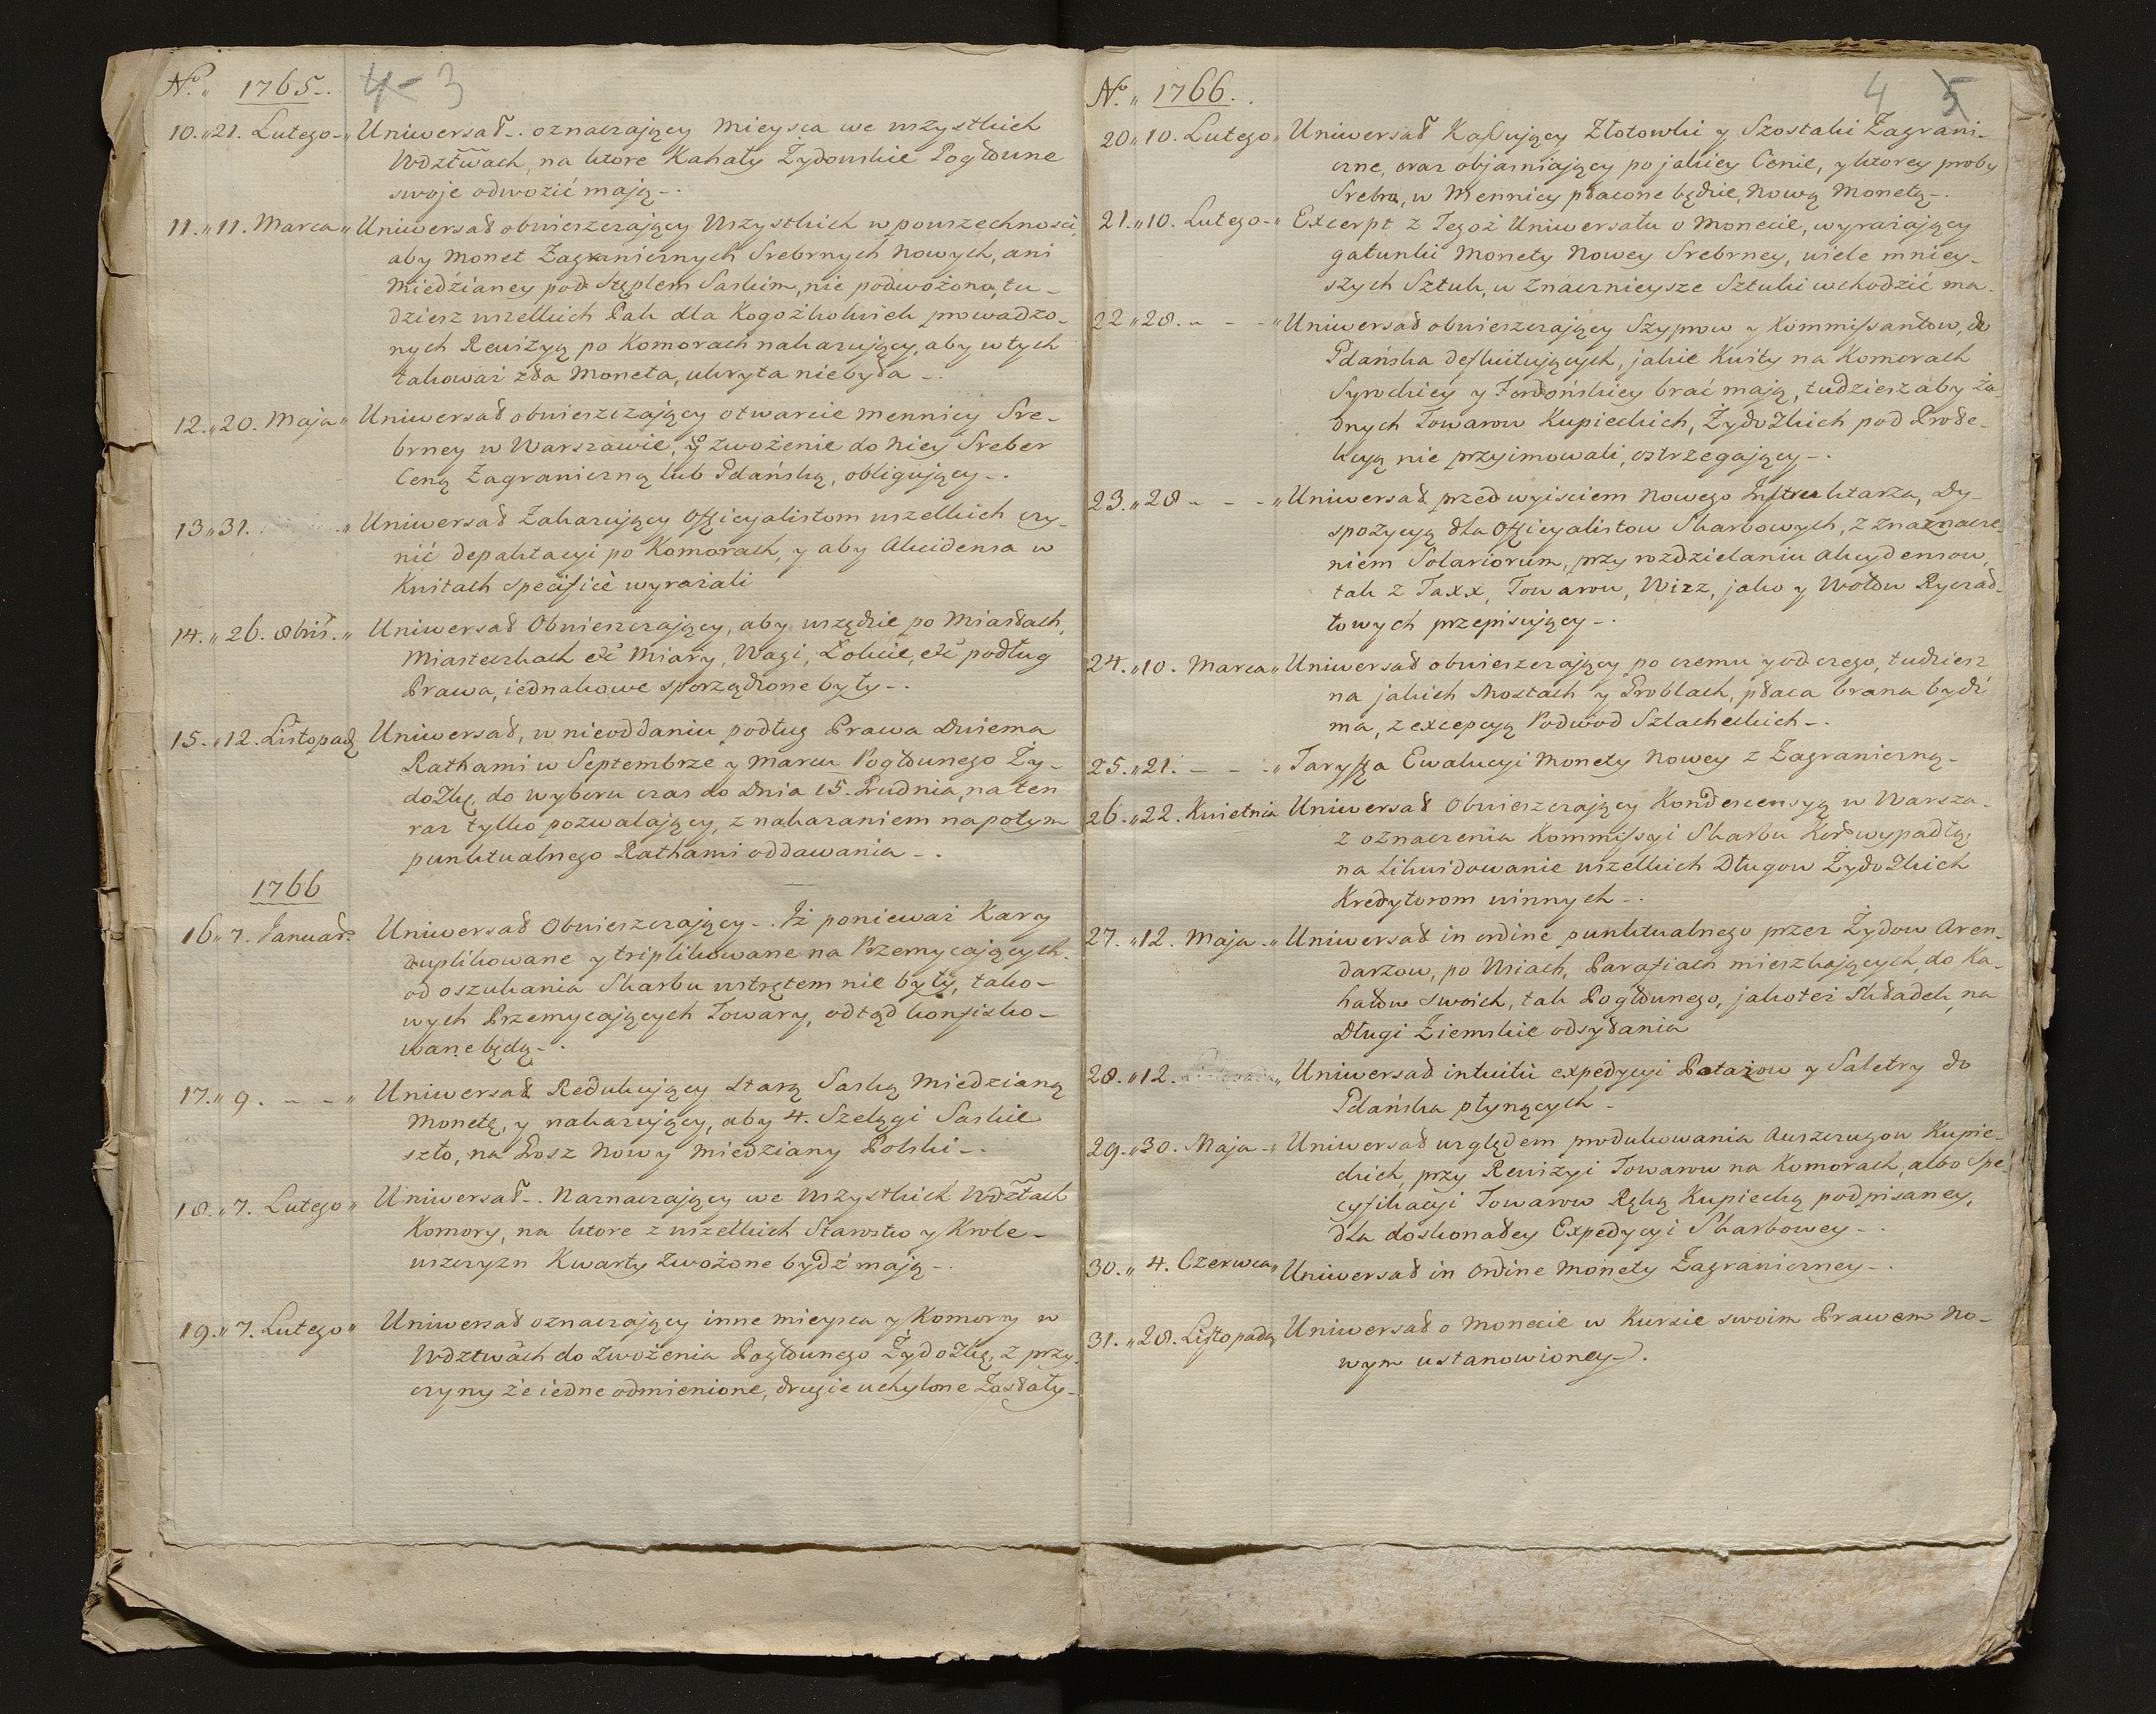 No. „ 1765.. 4 3
10. „ 21. Lutego „ Uniwersał.. oznaczaiący Mieysca we wszystkich
Wdztwach, na ktore Kahały Zydowskie Pogłowne
swoje odwozić mają..
11. „ 11. Marca „ Uniwersał obwieszczający Wszystkich w powszechności,
aby Monet Zagranicznych Srebrnych Nowych, ani
Miedzianey pod Stęplem Saskim, nie podwożono, tu-
dziesz wszelkich Pak dla Kogożkolwiek prowadzo-
nych Rewizyą po Komorach nakazujący, aby w tych
takoważ zła Moneta, ukryta niebyła..
12. „ 20. Maja „ Uniwersał obwieszczający otwarcie Mennicy Sre-
brney w Warszawie, y zwożenie do Niey Sreber
Ceną Zagraniczną lub Gdańską, obligujący..
13 „ 31. „ Uniwersał Zakazujący Officyalistom wszelkich czy-
nić depaktacyi po Komorach, y aby Akcidensa w
Kwitach specifice wyrażali
14. „ 26. 8bris. „ Uniwersał Obwieszczający, aby wszędzie po Miastach,
Miasteczkach etc Miary, Wagi, Łokcie, etc podług
Prawa, iednakowe sporządzone były..
15. „ 12. Listopad Uniwersał, w nieoddaniu podług Prawa Dwiema
Rathami w Septembrze y Marcu Pogłownego Ży-
do2kę, do wyboru czas do Dnia 15. Grudnia, na ten
raz tylko pozwalający, z nakazaniem napotym
punktualnego Rathami oddawania..
1766
16 „ 7. Januar. Uniwersał Obwieszczający.. Iż ponieważ Kary
duplikowane y triplikowane na Przemycających
od oszukania Skarbu wstrętem nie były, tako-
wych Przemycających Towary, odtąd konfisko-
wane będą..
17. „ 9. „ Uniwersał Redukujący starą Saską Miedzianą
Monetę, y nakazujący, aby 4. Szelągi Saskie
szło, na Grosz Nowy Miedziany Polski..
18. „ 7. Lutego „ Uniwersał.. Naznaczający we Wszystkich Wdztach
Komory, na ktore z wszelkich Starostw y Krole-
wszczyzn Kwarty zwożone bydź mają..
19. „ 7. Lutego „ Uniwersał oznaczający inne mieysca y Komory w
Wdztwach do zwożenia Pogłownego Żydo2kę, z przy-
czyny że iedne odmienione, drugie uchylone Zostały..
No. „ 1766.. 4 5
20 „ 10. Lutego „ Uniwersał Kassujący Złotowki y Szostaki Zagrani-
czne, oraz objaśniający po jakiey Cenie, y ktorey proby
Srebra, w Mennicy płacone będzie, Nową Monetą..
21. „ 10. Lutego „ Excerpt z Tegoż Uniwersału o Monecie, wyrażający
gatunki Monety Nowey Srebrney, wiele mniey-
szych Sztuk, w Znacznieysze Sztuki wchodzić ma.
22 „ 28. „ Uniwersał obwieszczający Szyprow y Kommissantow, do
Gdańska defluitujących, jakie Kwity na Komorach
Syrockiey y Fordońskiey brać mają, tudziesz aby ża-
dnych Towarow Kupieckich, Żydo2kich pod Prote-
kcyą nie przyimowali, ostrzegający..
23. „ 28 „ Uniwersał przed wyisciem Nowego Instruktarza, Dy-
spozycyą dla Officyalistow Skarbowych, z znaznacze-
niem Solariorum, przy rozdzielaniu akcydensow,
tak z Taxx, Towarow, Wizz, jako y Wołow Ryczał-
towych przepisujący..
24. „ 10. Marca „ Uniwersał obwieszczający po czemu y od czego, tudziesz
na jakich Mostach y Groblach, płaca brana bydź
ma, z excepcyą Podwod Szlacheckich..
25. „ 21. „ Taryffa Ewalucyi Monety Nowey z Zagraniczną..
26. „ 22. Kwietnia Uniwersał Obwieszczający Kondescensyą w Warsza.
z oznaczenia Kommissyi Skarbu Kor. wypadłą,
na Likwidowanie wszelkich Długow Żydo2kich
Kredytorom winnych..
27. „ 12. Maja „ Uniwersał in ordine punktualnego przez Żydow Aren-
darzow, po Wsiach, Parafiach mieszkających, do Ka-
hałow swoich, tak Pogłownego, jakoteż Składek, na
Długi Ziemskie odsyłania
28. „ 12. „ Uniwersał intuitu expedycyi Potażow y Saletry do
Gdańska płynących..
29. „ 30. Maja „ Uniwersał względem produkowania Auszczugow Kupie-
ckich, przy Rewizyi Towarow na Komorach, albo Spe-
cyfikacyi Towarow Ręką Kupiecką podpisaney,
dla doskonałey Expedycyi Skarbowey..
30. „ 4. Czerwca „ Uniwersał in Ordine Monety Zagraniczney..
31. „ 28. Listopada Uniwersał o Monecie w Kursie swoim Prawem No-
wym ustanowioney..